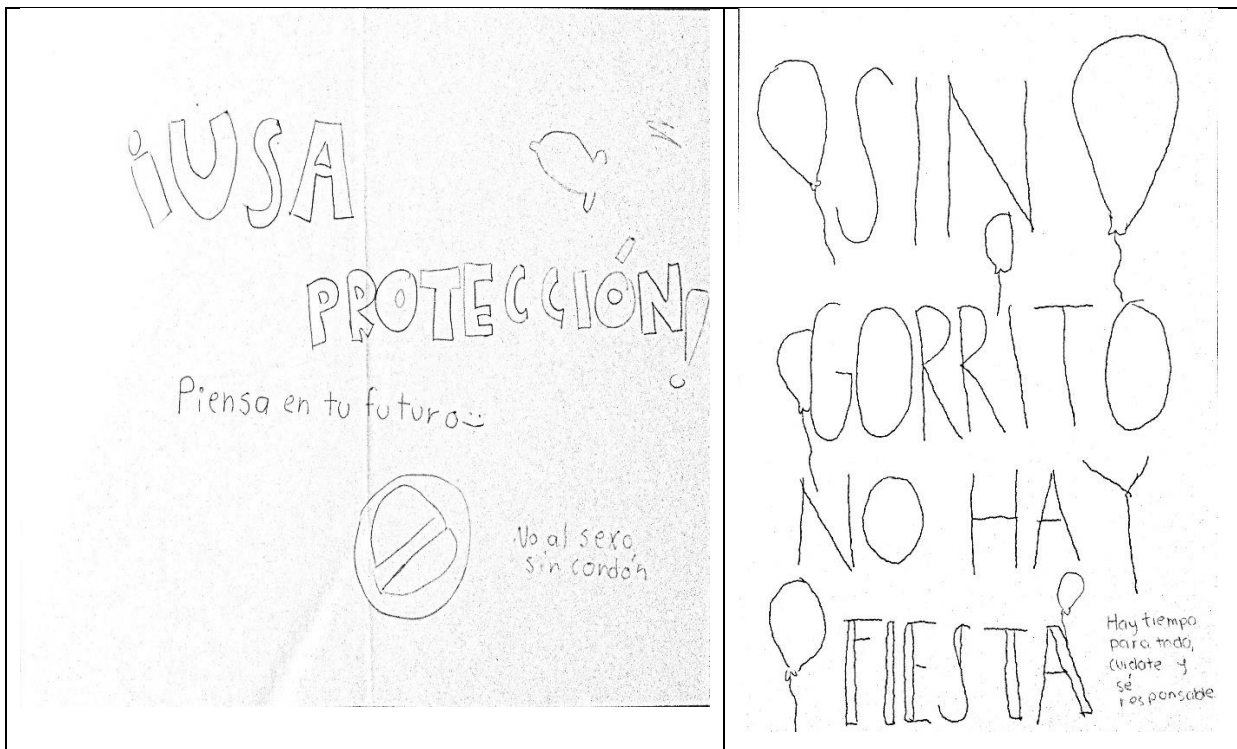 ¡USA
PROTECCIÓN!
Piensa en tu futuro
No al sexo
sin condón
SIN
GORRITO
NO HAY
FIESTA
Hay tiempo
para todo,
cuidate y
sé
responsable